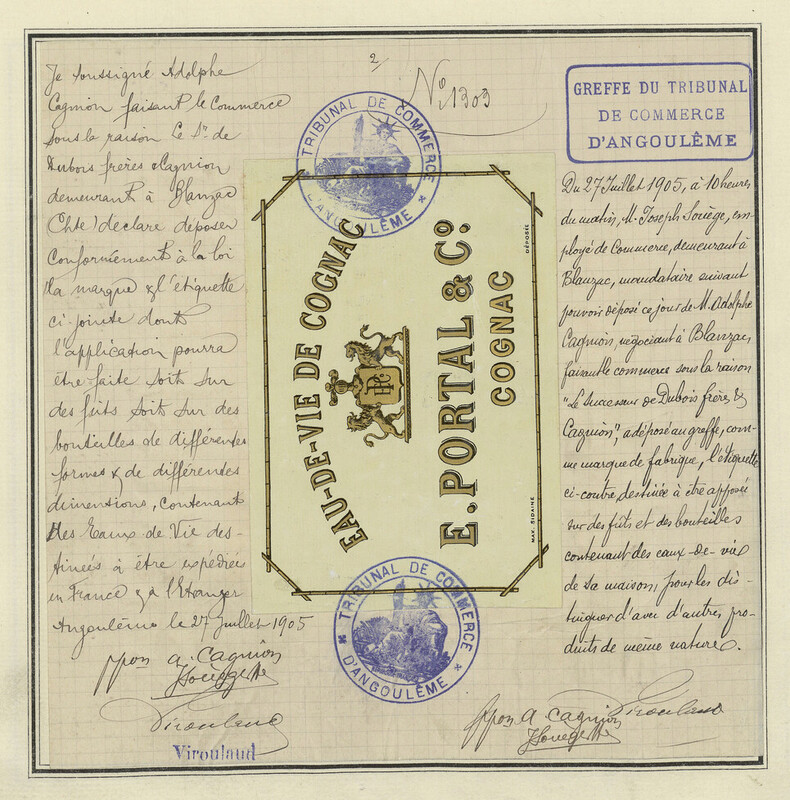 2
N° 1303
Je soussigné Adolphe
Cagnion faisant le Commerce
sous la raison Le Sr. de
Dubois frères & Cagnion
demeurant à Blanzac
(Chte) déclare déposer
Conformément à la loi
la marque & l'étiquette
ci-jointe dont
l'application pourra
être faite soit sur
des fûts soit sur des
bouteilles de différentes
formes & de différentes
dimentions, contenant
des Eaux de Vie des-
tinées à être expédiées
en France & à l'Etranger
Angoulême le 27 Juillet 1905
ppon a. Cagnion
Virouland
Virouland
TRIBUNAL DE COMMERCE
D'ANGOULÊME
EAU-DE-VIE DE COGNAC
E. PORTAL & Co.
COGNAC
DÉPOSÉE
MAX. SIDAINE
TRIBUNAL DE COMMERCE
D'ANGOULÊME
GREFFE DU TRIBUNAL
DE COMMERCE
D'ANGOULÊME
Du 27 Juillet 1905, à 10 heures
du matin, M. Joseph Soriège, em-
ployé de Commerce, demeurant à
Blanzac, mandataire suivant
pouvoir déposé ce jour de M. Adolphe
Cagnion, négociant à Blanzac,
faisant le commerce sous la raison
"Le Successeur de Dubois frères &
Cagnion", a déposé au greffe, com-
me marque de fabrique, l'étiquette
ci-contre, destinée à être apposée
sur des fûts et des bouteilles
contenant des eaux-de-vie
de sa maison, pour les dis-
tinguer d'avec d'autres pro-
duits de même nature.
ppon a Cagnion
Virouland